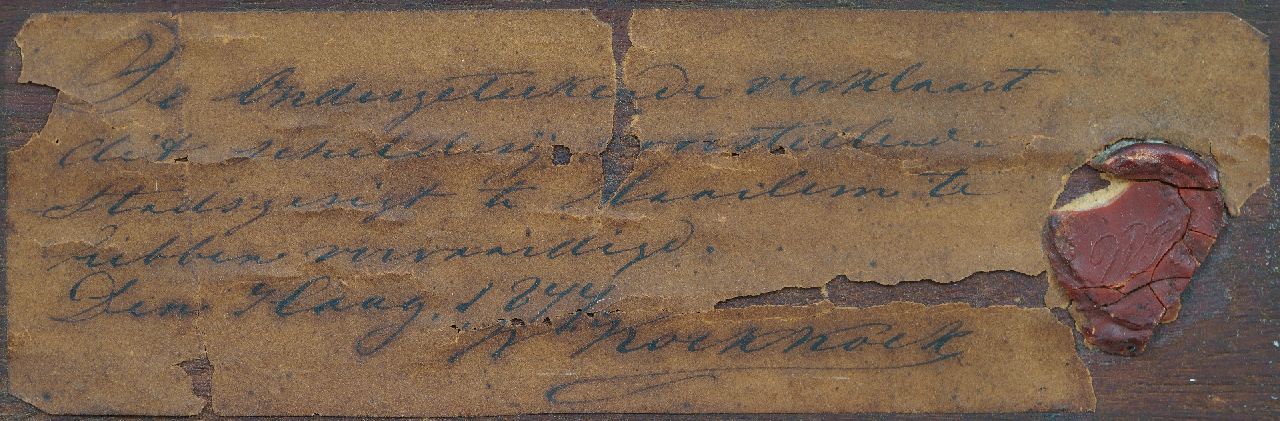 De Ondergeteekende verklaart
dit schilderij, voorstellende
Stadsgezigt te Haarlem te
hebben vervaardigd.
Den Haag, 1844
W Koekkoek